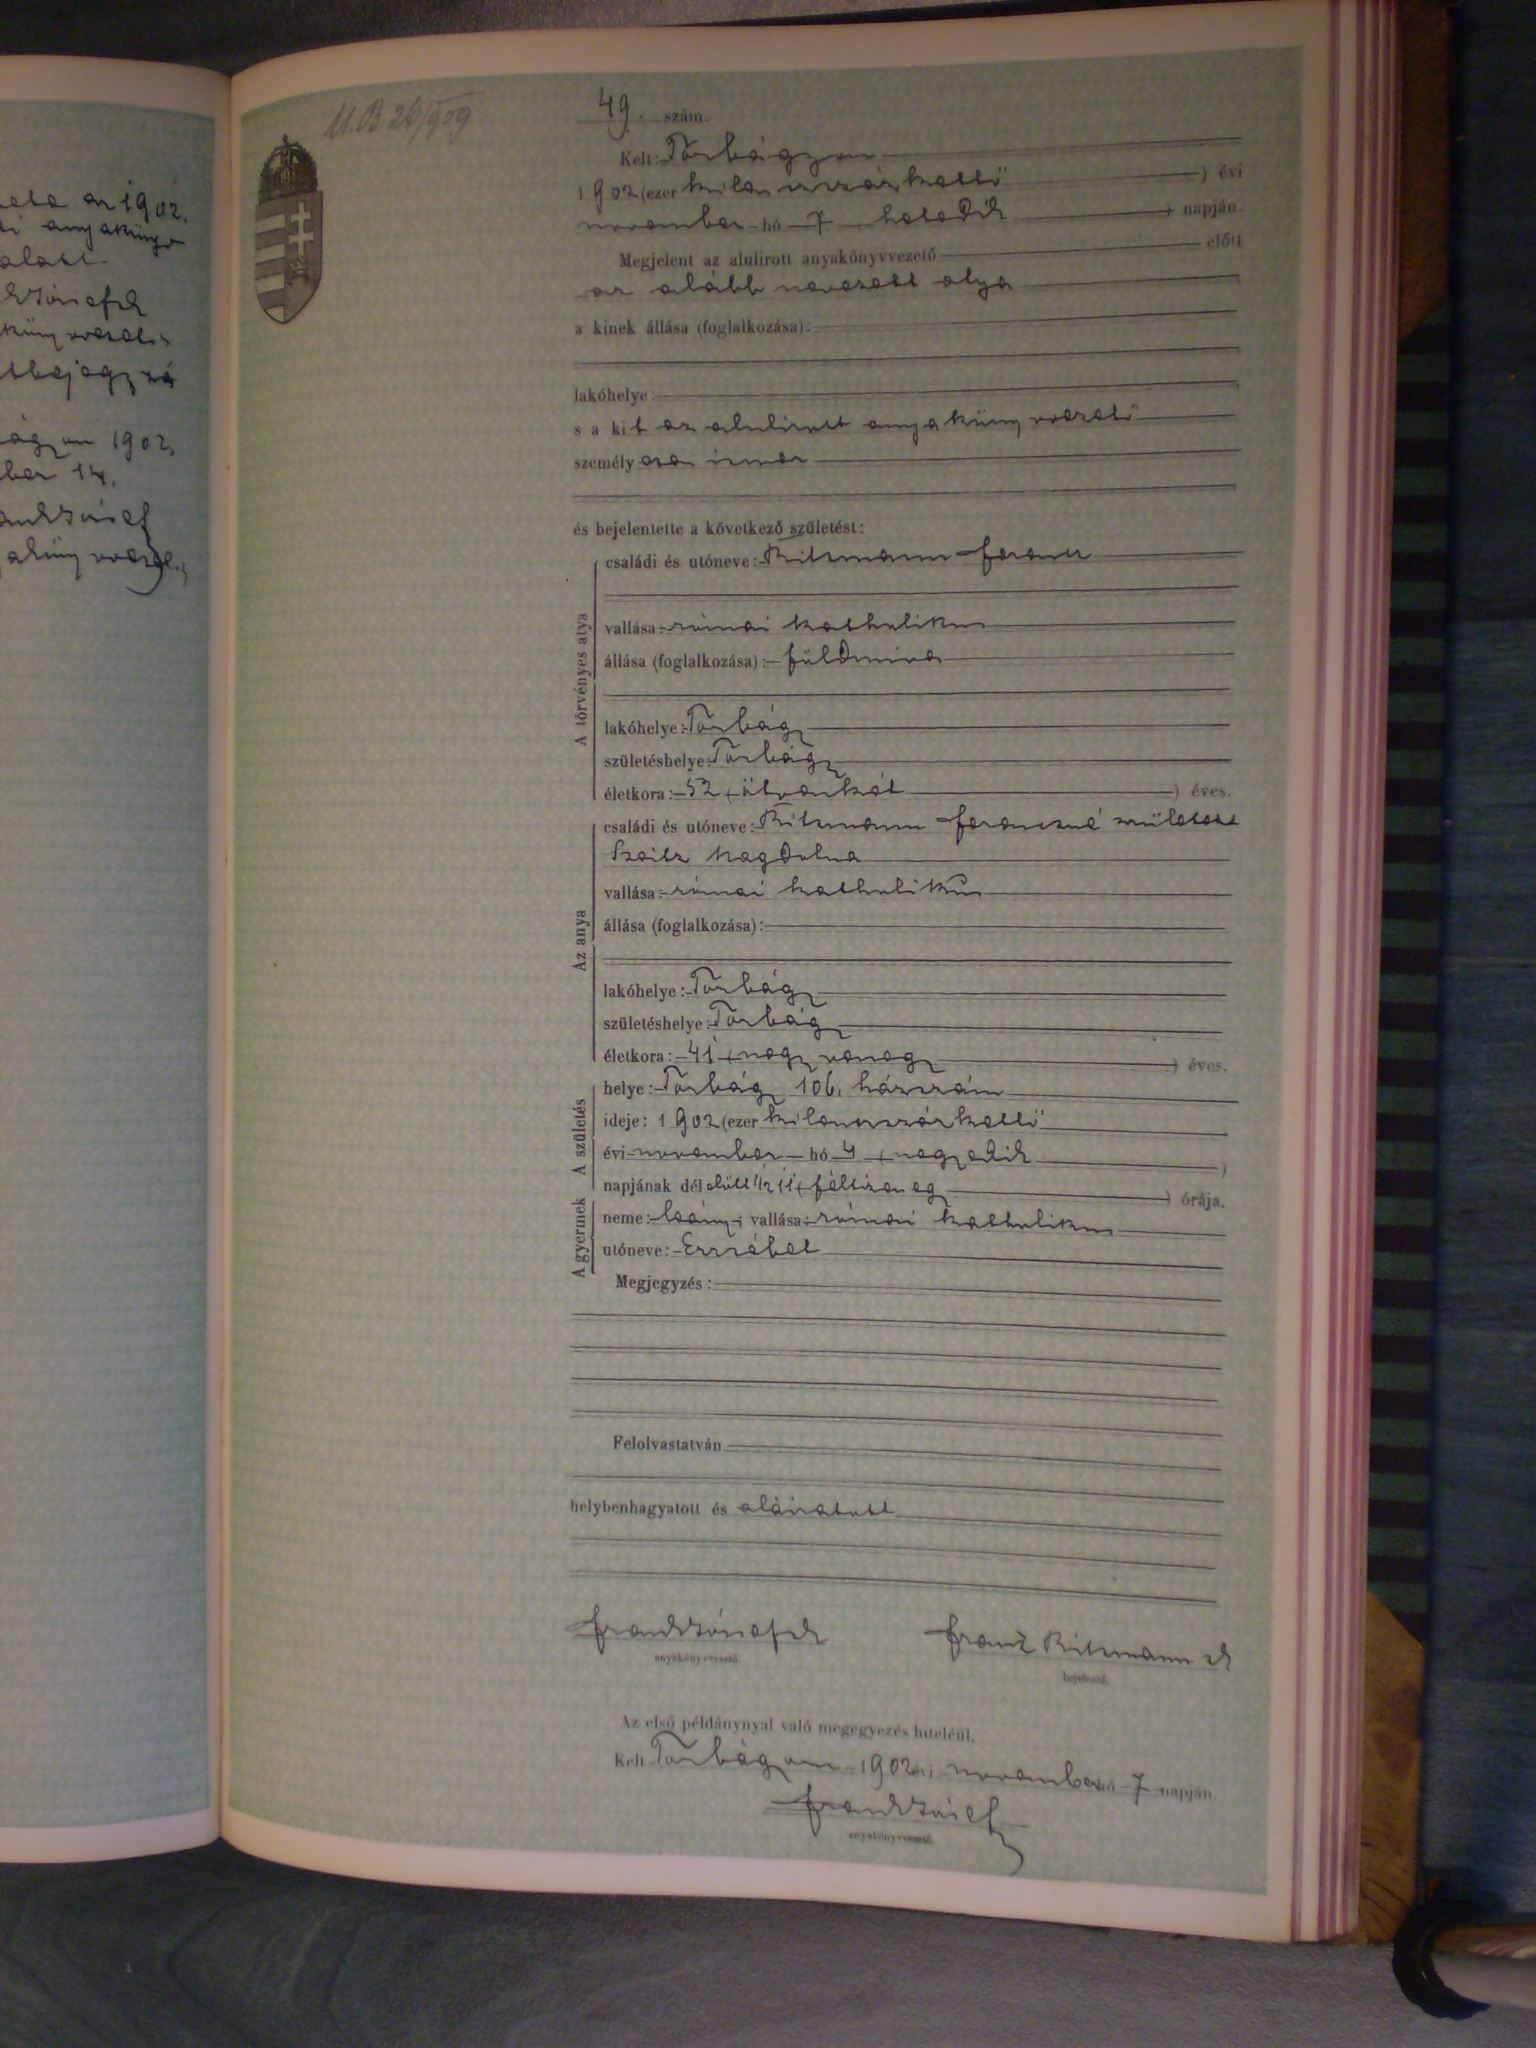 ete az 1902.
anyakönyv
alatt
könyvvezető
utbejegyzé
ágyon 1902.
ber 14.
József
akönyvvezető
M.B 26/909
49. szám.
Kelt: Torbágyon
1902 (ezer kilenczszázkettő ) évi
november hó 7 ( hetedik ) napján.
Megjelent az alulirott anyakönyvvezető előtt
az alább nevezett atya
a kinek állása (foglalkozása):
lakóhelye:
s a kit az alulirott anyakönyvvezető
személyesen ismer
és bejelentette a következő születést:
A törvényes atya
családi és utóneve: Ritzmann Ferencz
vallása: római katholikus
állása (foglalkozása): földmíves
lakóhelye: Torbágy
születéshelye: Torbágy
életkora: 52 (ötvenkét ) éves.
Az anya
családi és utóneve: Ritzmann Ferenczné született
Szeitz Magdolna
vallása: római katholikus
állása (foglalkozása):
lakóhelye: Torbágy
születéshelye: Torbágy
életkora: 41 (negyvenegy ) éves.
A születés
helye: Torbágy 106. házszám
ideje: 1902 (ezer kilenczszázkettő
évi november hó 4 (negyedik )
napjának délelőtt 1/2 11 (féltizenegy ) órája.
A gyermek
neme: leány; vallása: római katholikus
utóneve: Erzsébet
Megjegyzés:
Felolvastatván
helybenhagyatott és aláiratott
Frank József sk
anyakönyvvezető
Franz Ritzmann sk
bejelentő.
Az első példánynyal való megegyezés hiteléül.
Kelt Torbágyon 1902 évi november hó 7 napján
Frank József
anyakönyvvezető.